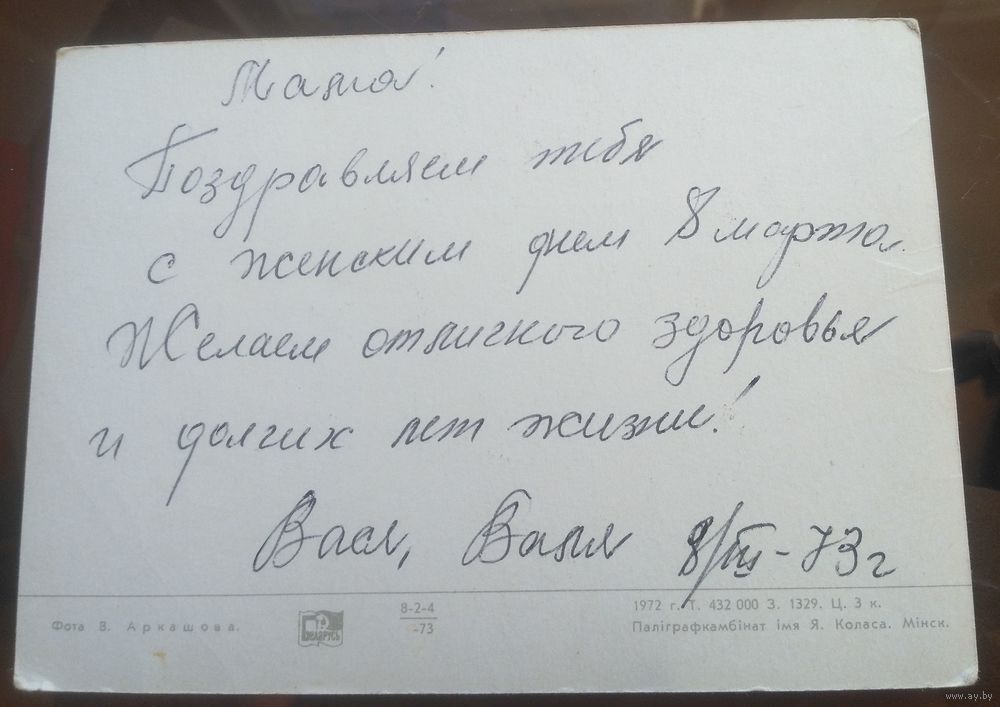 Мама!
Поздравляем тебя
с женским днем 8 марта.
Желаем отличного здоровья
и долгих лет жизни!
Вася, Валя 8/III-73г
Фота В. Аркашова.
БЕЛАРУСЬ
8-2-4
-73
1972 г. Т. 432 000 З. 1329. Ц. 3 к.
Паліграфкамбінат імя Я. Коласа. Мінск.
www.ay.by